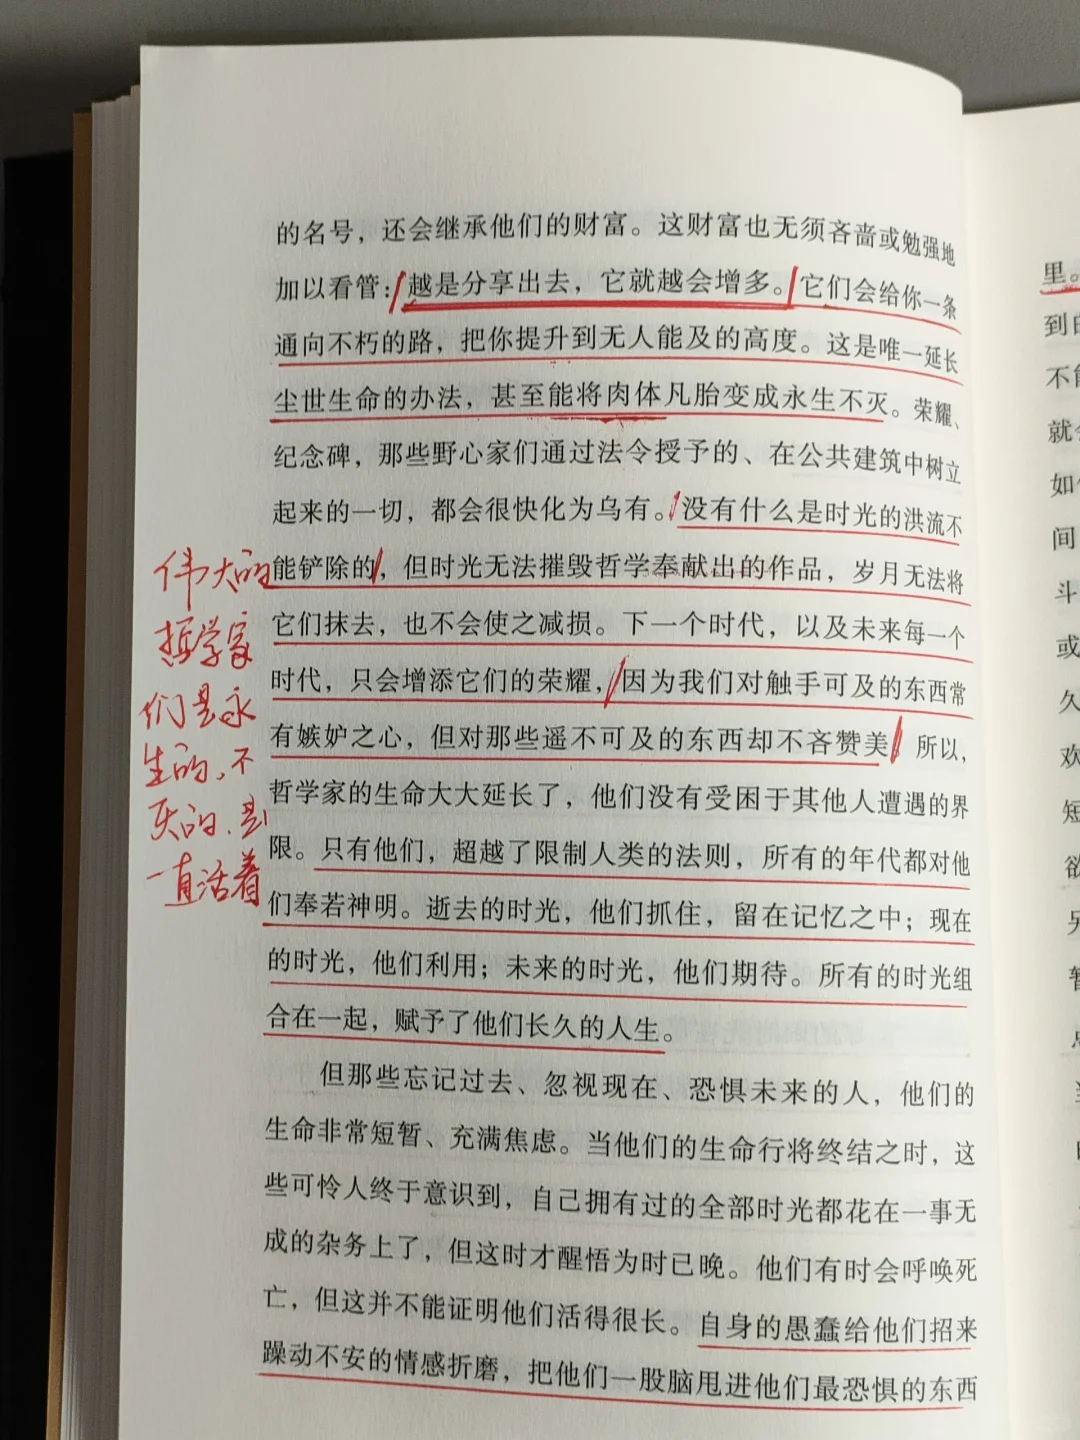 的名号，还会继承他们的财富。这财富也无须吝啬或勉强地
加以看管：越是分享出去，它就越会增多。它们会给你一条
通向不朽的路，把你提升到无人能及的高度。这是唯一延长
尘世生命的办法，甚至能将肉体凡胎变成永生不灭。荣耀、
纪念碑，那些野心家们通过法令授予的、在公共建筑中树立
起来的一切，都会很快化为乌有。没有什么是时光的洪流不
能铲除的，但时光无法摧毁哲学奉献出的作品，岁月无法将
它们抹去，也不会使之减损。下一个时代，以及未来每一个
时代，只会增添它们的荣耀，因为我们对触手可及的东西常
有嫉妒之心，但对那些遥不可及的东西却不吝赞美。所以，
哲学家的生命大大延长了，他们没有受困于其他人遭遇的界
限。只有他们，超越了限制人类的法则，所有的年代都对他
们奉若神明。逝去的时光，他们抓住，留在记忆之中；现在
的时光，他们利用；未来的时光，他们期待。所有的时光组
合在一起，赋予了他们长久的人生。
但那些忘记过去、忽视现在、恐惧未来的人，他们的
生命非常短暂、充满焦虑。当他们的生命行将终结之时，这
些可怜人终于意识到，自己拥有过的全部时光都花在一事无
成的杂务上了，但这时才醒悟为时已晚。他们有时会呼唤死
亡，但这并不能证明他们活得很长。自身的愚蠢给他们招来
躁动不安的情感折磨，把他们一股脑甩进他们最恐惧的东西
伟大的
哲学家
们是永
生的、不
灭的、是
一直活着
里。
到
不
就
如
间
斗
或
久
欢
短
欲
暂